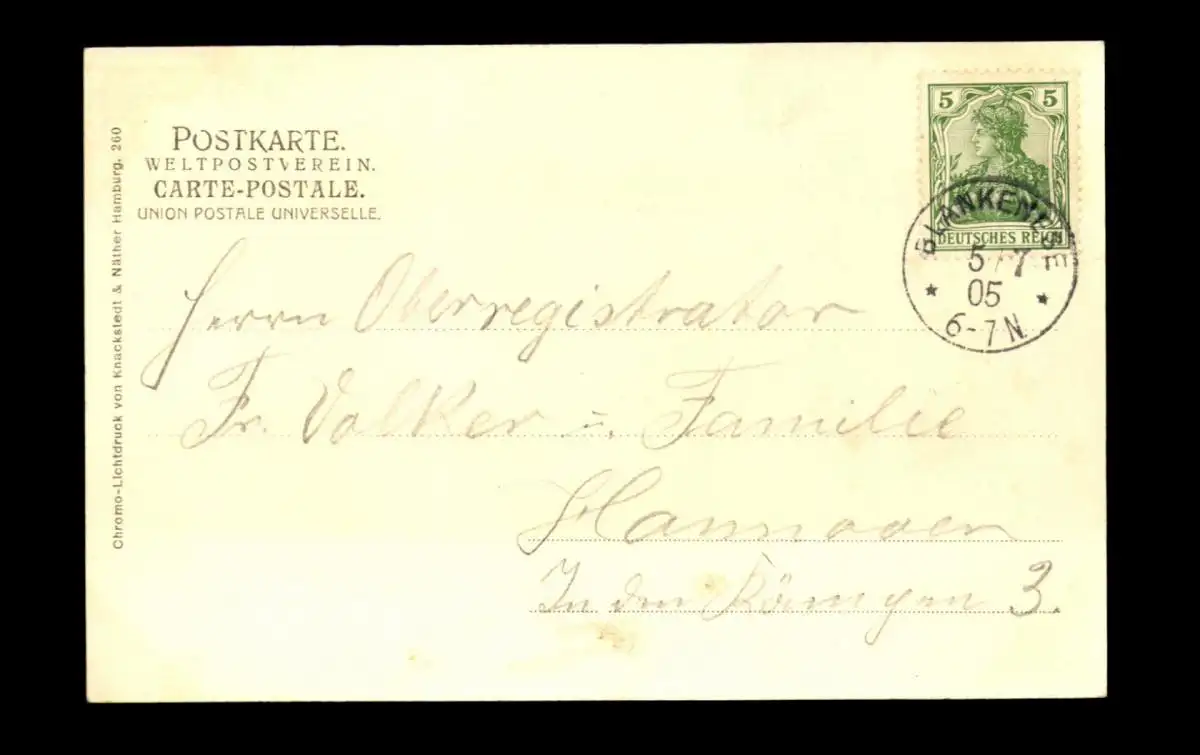 POSTKARTE.
WELTPOSTVEREIN.
CARTE-POSTALE.
UNION POSTALE UNIVERSELLE.
Chromo-Lichtdruck von Knackstedt & Näther Hamburg. 260
5 5
DEUTSCHES REICH
BLANKENESE
5/7
05
6-7N.
Herrn Oberregistrator
Fr. Volker u. Familie
Hannover
In den 3.